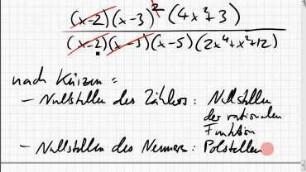 (x-2)(x-3)²(4x²+3)
(x-2)(x-3)(x-5)(2x⁴+x²+12)
nach Kürzen:
- Nullstellen des Zählers: Nullstellen
der rationalen
Funktion
- Nullstellen des Nenners: Polstellen